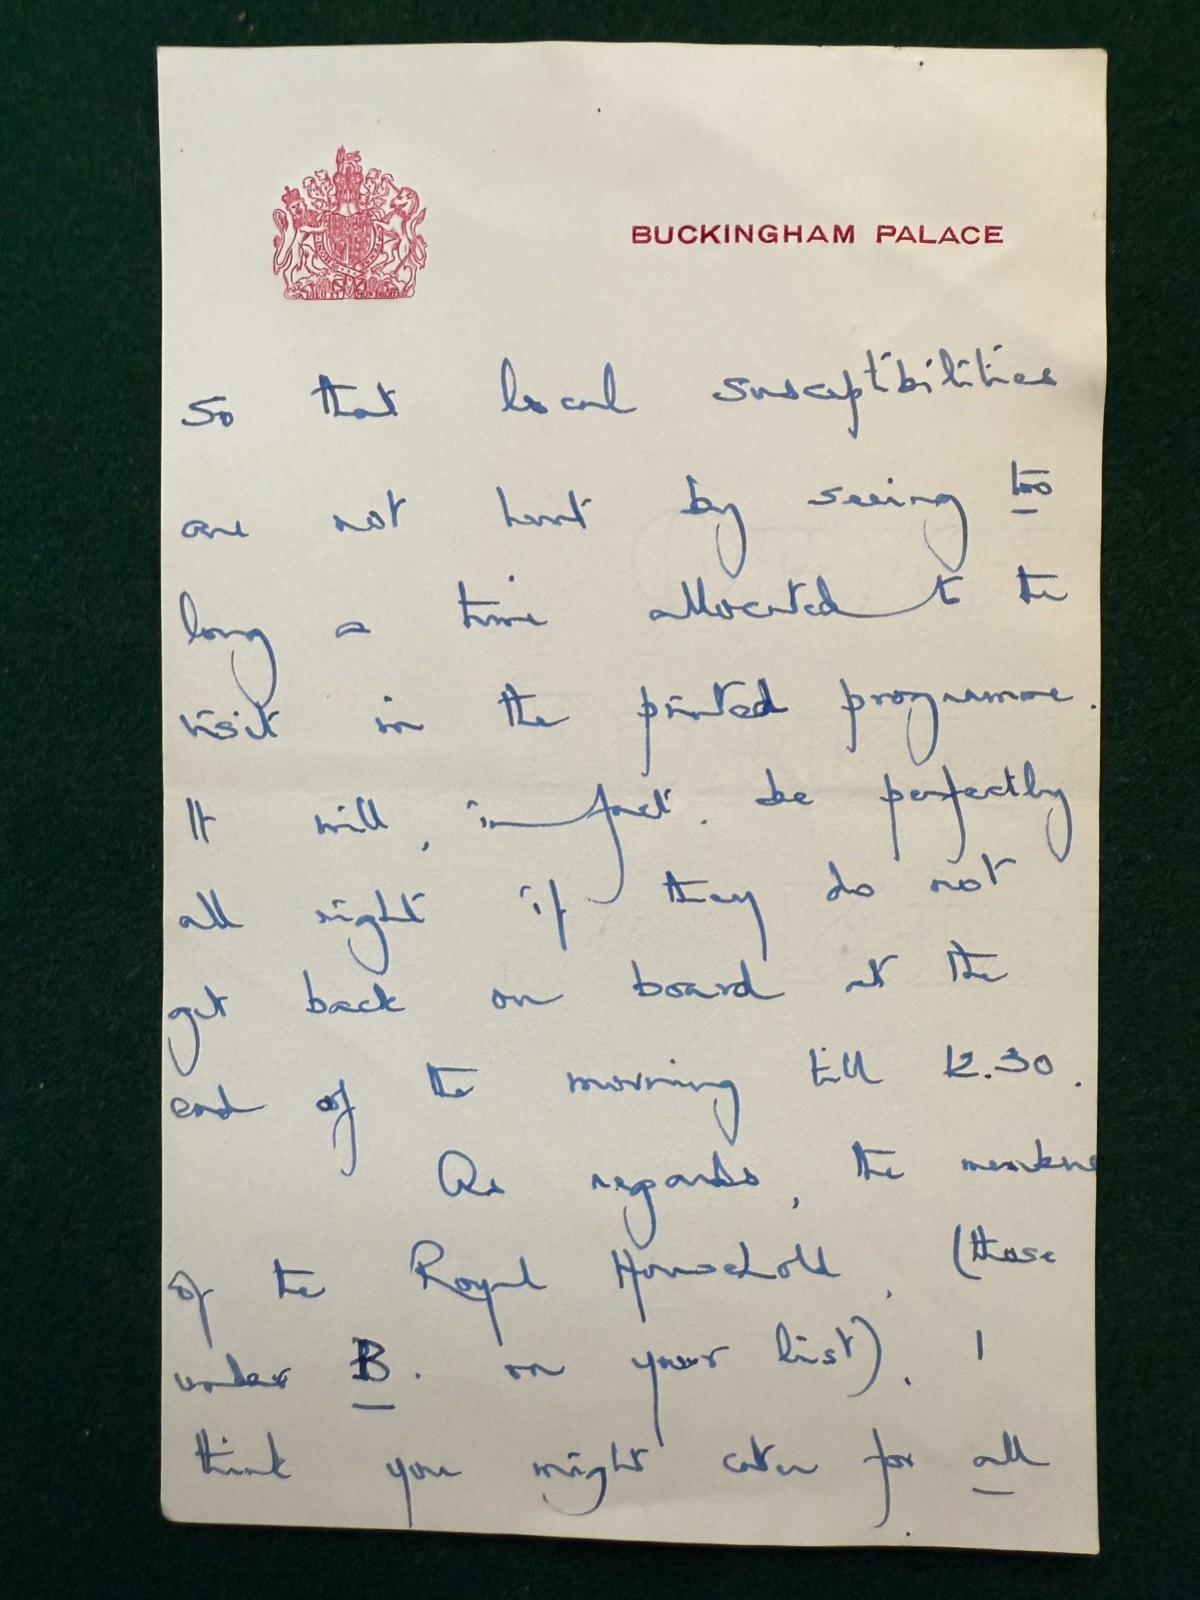 BUCKINGHAM PALACE
So that local susceptibilities
are not hurt by seeing too
long a time allocated to the
visit in the printed programme.
It will, in fact, be perfectly
all right if they do not
get back on board at the
end of the morning till 12.30.
As regards, the members
of the Royal Household, (those
under B. on your list), I
think you might cater for all